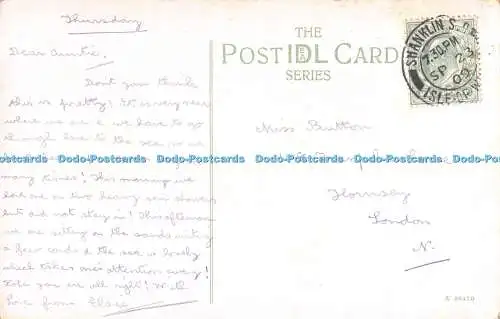 Thursday
Dear Auntie,
Don't you think
this is pretty! It is very near
where we are & we have to go
through here to the sea so we
many times! This morning we
had one or two heavy rain showers
but did not stay in! This afternoon
we are sitting on the sands writing
a few cards & the sea is lovely
which takes one's attention away!
Hope you are all right! With
love from Elsie
THE
POST IDL CARD
SERIES
SHANKLIN S.O.
7.30 PM
SP 23
09
ISLE OF W
Miss Button
Hornsey
London
N.
Dodo-Postcards Dodo-Postcards Dodo-Postcards Dodo-Postcards Dodo-Postcards Dodo-Postcards